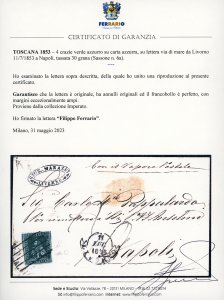 FERRARIO
CERTIFICATO DI GARANZIA
TOSCANA 1853 - 4 crazie verde azzurro su carta azzurra, su lettera via di mare da Livorno
11/7/1853 a Napoli, tassata 30 grana (Sassone n. 6a).
Ho esaminato la lettera sopra descritta, della quale ho unito una riproduzione al presente
certificato.
Garantisco che la lettera è originale, ha annulli originali ed il francobollo è perfetto, con
margini eccezionalmente ampi.
Proviene dalla collezione Imperato.
Ho firmato la lettera "Filippo Ferrario".
Milano, 31 maggio 2023
Col Vapore Postale
Napoli
Sede e Studio:
20121 MILANO